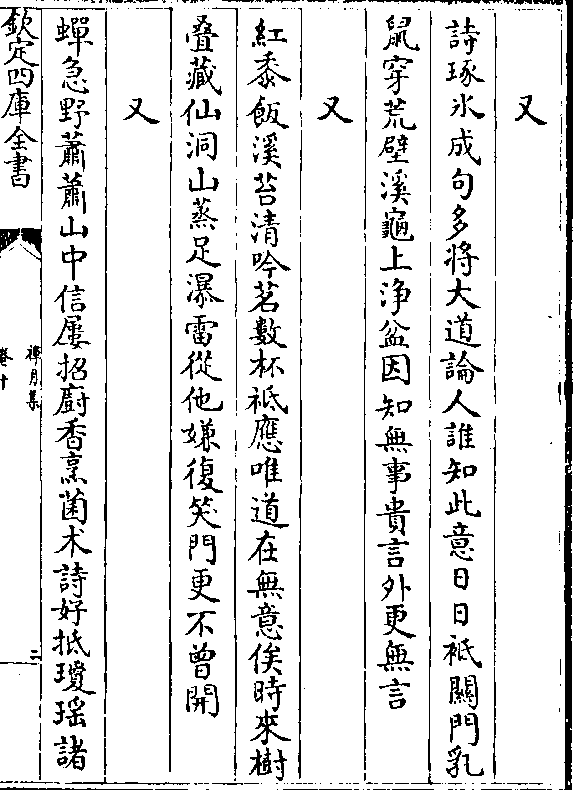 又
詩琢氷成句多將大道論人誰知此意日日祗關門乳
鼠穿荒壁溪龜上浄盆因知無事貴言外更無言
又
紅黍飯溪苔清吟茗數杯祗應唯道在無意俟時來樹
疊藏仙洞山蒸足瀑雷從他嫌復笑門更不曾開
又
蟬急野蕭蕭山中信屢招廚香烹菌术詩好抵瓊瑶諸
欽定四庫全書
禪月集
卷十
二